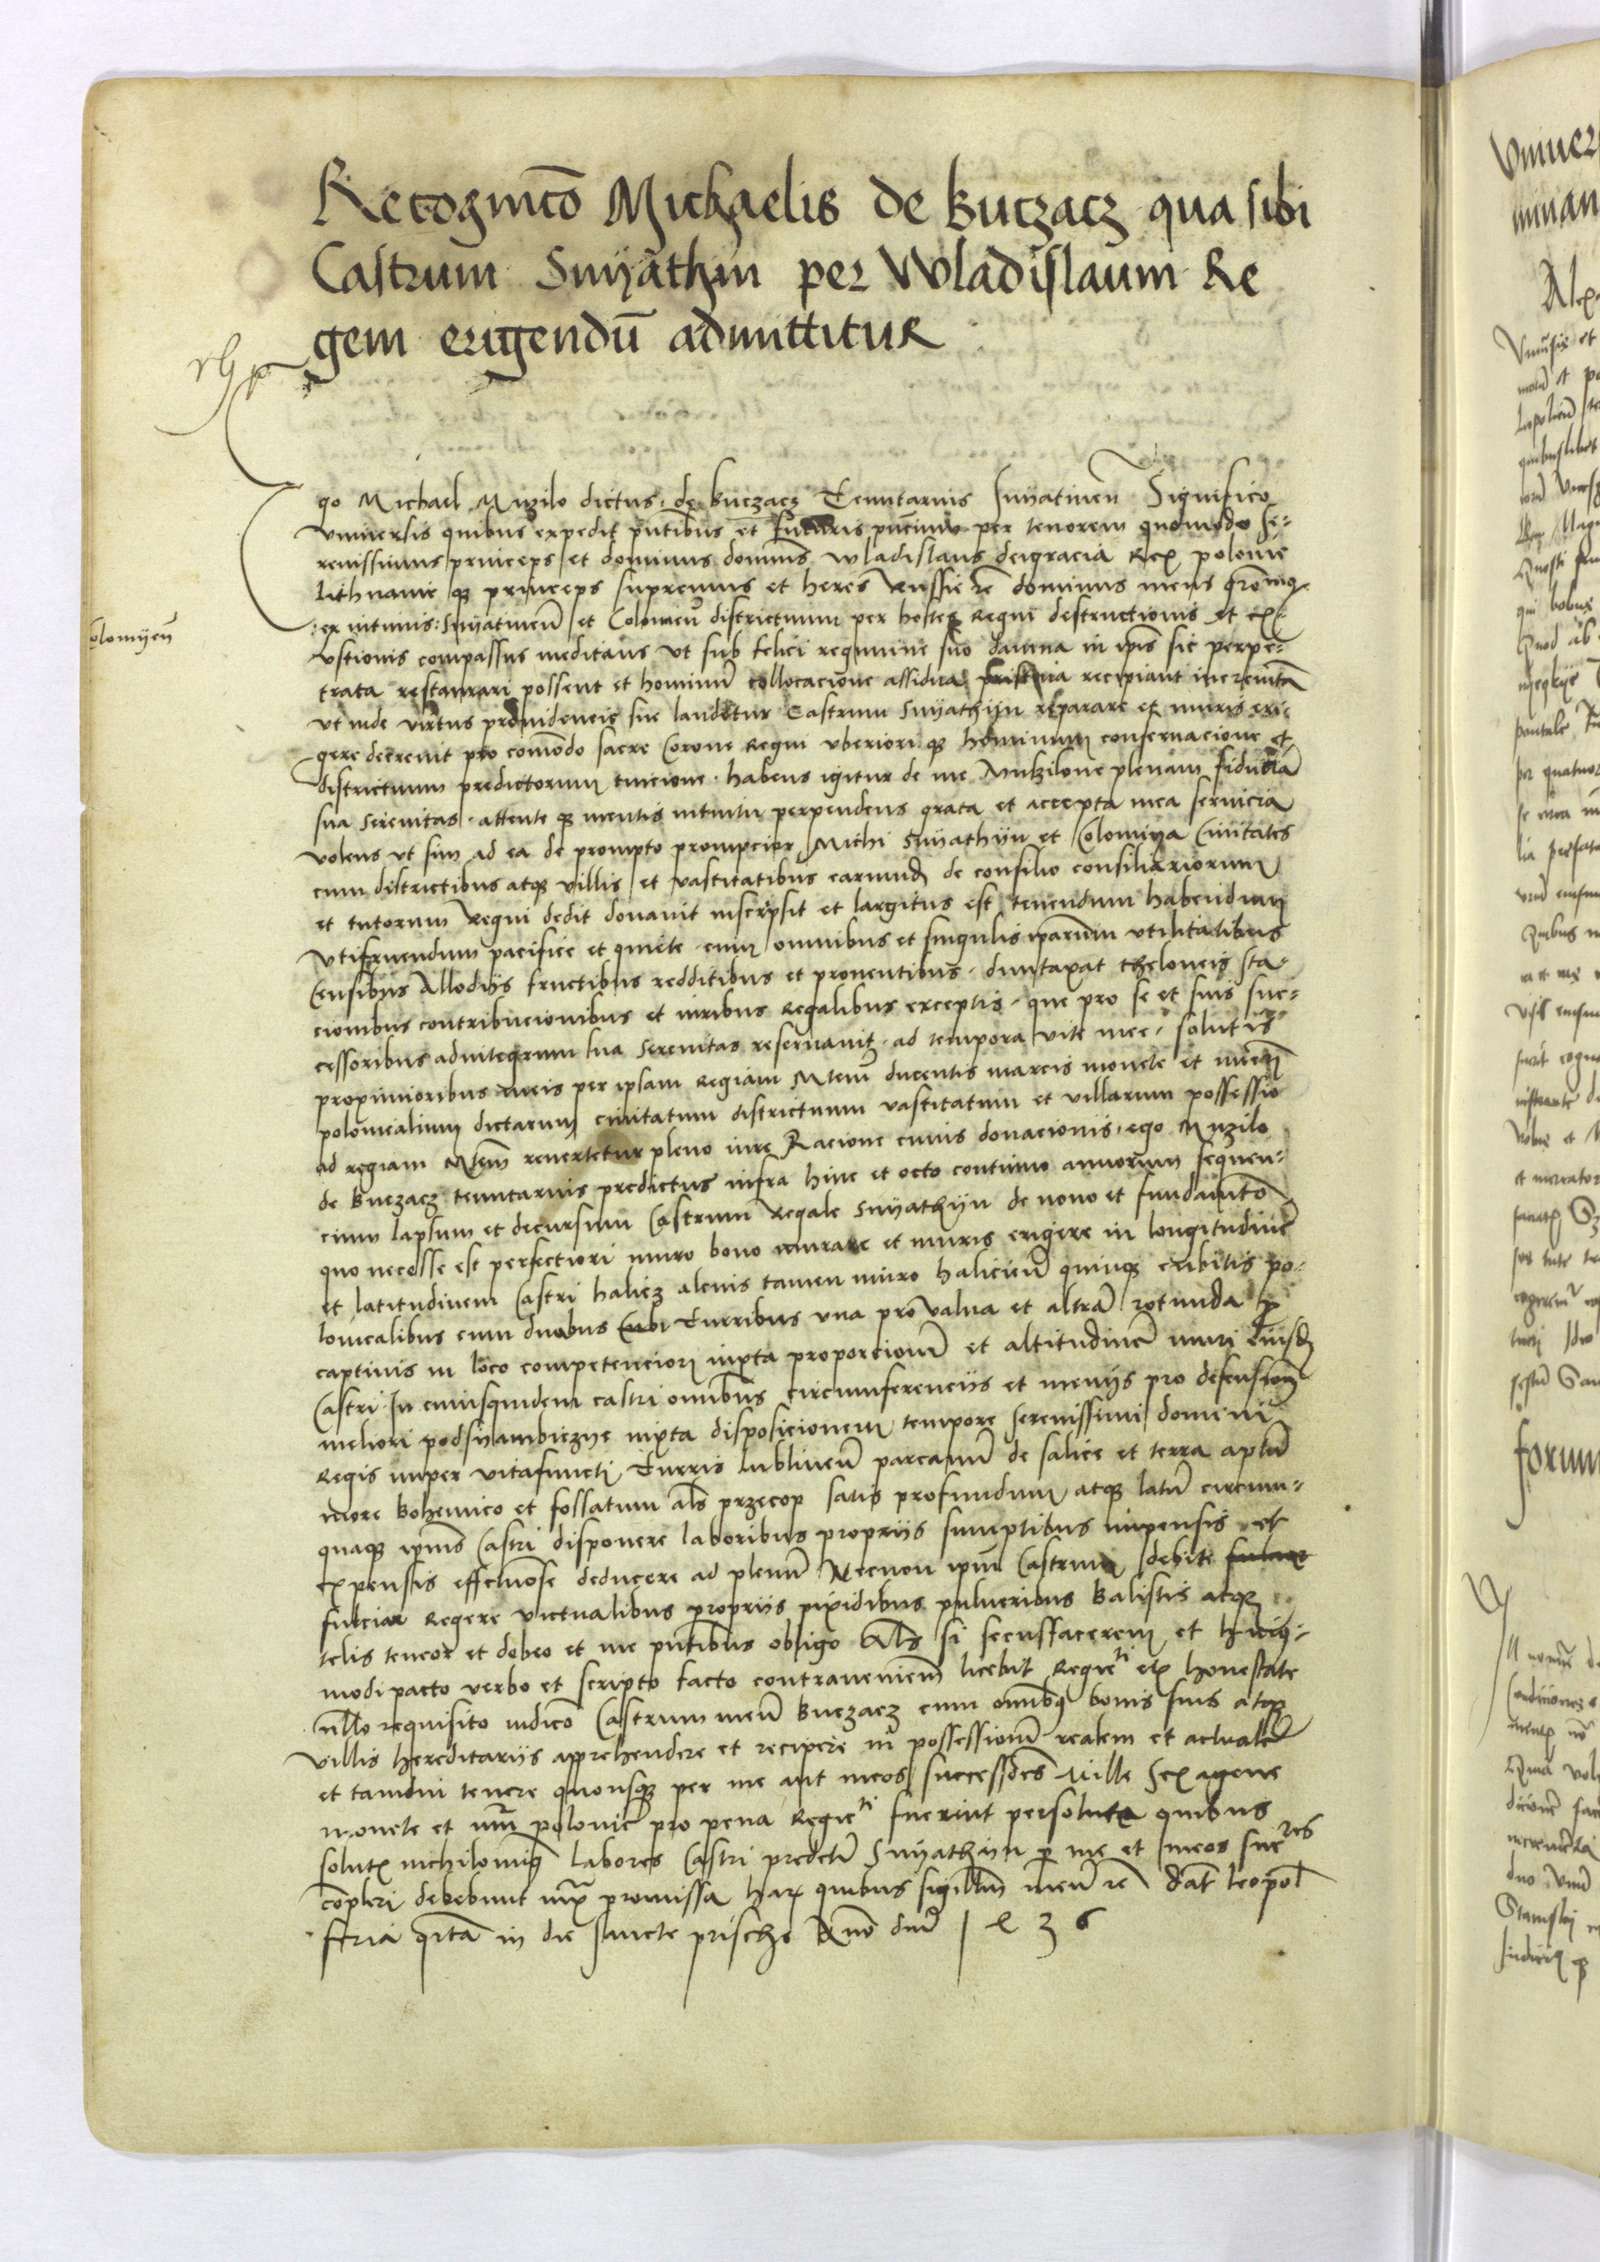 Recognicō Michaelis de Buczacz qua sibi
Castrum Snyathin per Wladislaum Re
gem erigendū admittitur
Ego Michael Muzilo dictus de Buczacz Tenutarius Snyatinen̄ Significo
vniversis quibus expedit pn̄tibus et futuris per tenorem quomodo Se-
renissimus princeps et dominus dominus wladislaus deigracia Rex polonie
lithuanie qȝ princeps supremus et heres Russie rē dominus meus
ex intimis Snyatinen̄ et Colomien̄ districtuum per hostes Regni destructionis et ex-
vstionis compassus meditans vt sub felici regimine suo dampna in ip̄is sic perpe-
trata restaurari possent et hominū collocacione assidua recipiant incremēta
vt inde virtus prouidencie sue laudetur Castrum Snyathijn reparare et muris eri-
gere decreuit pro com̄odo sacre Corone Regni vberiori qȝ hominum conseruacione et
districtuum predictorum tuicione habens igitur de me Muzilone plenam fiduciā
sua Serenitas attente qȝ mentis intuitu perpendens grata et accepta mea seruicia
volens vt sim ad ea de prompto prompcior Michi Snyathijn et Colomiya Ciuitates
cum districtibus atqȝ villis et vastitatibus earundē de consilio consiliariorum
et tutorum Regni dedit donauit inscripsit et largitus est tenendum habendum
vtifruendum pacifice et quiete cum omnibus et singulis ip̄arum vtilitatibus
Censibus Allodijs fructibus redditibus et prouentibus duntaxat theloneis sta-
cionibus contribucionibus et iuribus Regalibus exceptis que pro se et suis suc-
cessoribus adintegrum sua Serenitas reseruauit ad tempora vite mee solutis
proximioribus meis per ipsam Regiam Mtem̄ ducentis marcis monete et nūeri
polonicalium dictarum ciuitatum districtuum vastitatum et villarum possessio
ad regiam Mtem̄ reuertetur pleno iure Racione cuius donacionis ego Muzilo
de Buczacz tenutarius predictus infra hinc et octo continuo annorum sequen-
cium lapsum et decursum Castrum Regale Snyathijn de nouo et fundamēto
quo necesse est perfectiori muro bono murare et muris erigere in longitudinē
et latitudinem Castri halicz alcius tamen muro halicien̄ quinqȝ cubitis po-
lonicalibus cum duabus Turribus vna pro valua et altera rotunda p
captiuis in loco competenciori iuxta proporcionē et altitudinē muri eiusdē
Castri In cuiusquidem castri omnibus circumferencijs et menijs pro defensione
meliori podsyambiczye iuxta disposicionem tempore Serenissimi domini
Regis nuper vitafuncti Turris lublinen̄ parcanū de salice et terra aptū
more bohemico et fossatum al̄s przecop satis profundum atqȝ latū circum-
quaqȝ ip̄ius Castri disponere laboribus propriis sumptibus impensis et
expensis deducere ad plenū Necnon ip̄m Castrum debite
fulciar Regere victualibus propriis pixidibus pulueribus balistis atqȝ
telis teneor et debeo et me pn̄tibus obligo Al̄s si secusfacerem et huius-
modi pacto verbo et scripto facto contrauenirem licebit Regieti ex honestate
nullo requisito iudicō Castrum meū Buczacz cum omnibȝ bonis suis atqȝ
villis hereditarijs apprehendere et recipere in possessionē realem et actualē
et tamdiu tenere quousqȝ per me aut meos successores Mille Sexagene
monete et num̄ polonie pro pena Regieti fuerint persolute quibus
solutȝ nichilominȝ labores Castri predicti Snyathijn p me et meos sucres
compleri debebunt iux̄ promissa harȝ quibus sigillum meū rē Dat̄ leopol
feria qrta in die sancte prische Anō dnī 1436
Colomiyen̄